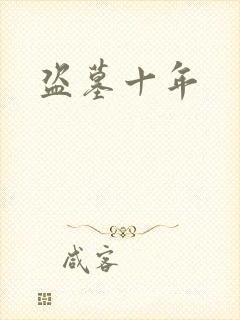 盗墓十年
咸客